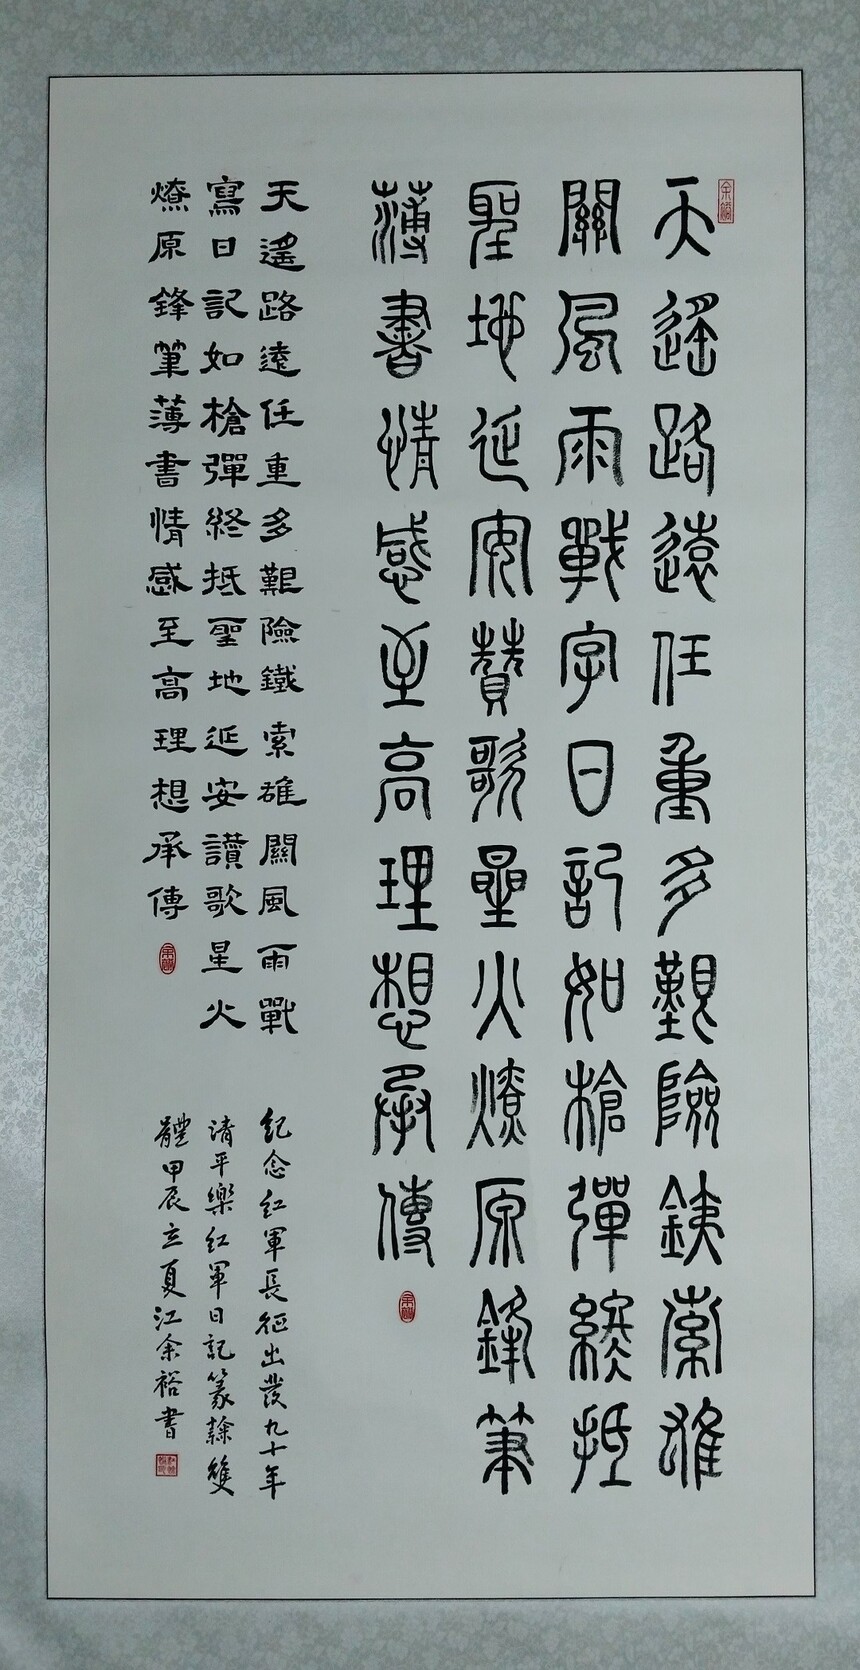 天遙路遠任重多艱險銕索雄
關風雨戰字日記如槍彈終抵
聖地延安贊歌星火燎原鋒筆
薄書情感至高理想承傳
天遙路遠任重多艱險鐵索雄關風雨戰
寫日記如槍彈終抵聖地延安讚歌星火
燎原鋒筆薄書情感至高理想承傳
紀念紅軍長征出發九十年
清平樂紅軍日記篆隸雙
體甲辰立夏江余裕書